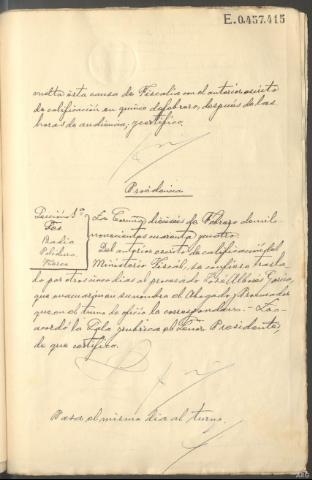 E.0.457.415
vuelta esta causa de Fiscalía con el anterior escrito
de calificación en quince de febrero, después de las
horas de audiencia, y certifico.
Providencia
Sección 1ª
La Coruña dieciseis de Febrero de mil
novecientos cuarenta y cuatro.
Del anterior escrito de calificación del
Ministerio Fiscal, se confiere trasla-
do por otros cinco días al procesado José
que evacuarán en su nombre el Abogado y Procurador
que en el turno de oficio le correspondan. - Lo a-
cordó la Sala y rubrica el Señor Presidente,
de que certifico.
Pasa el mismo día al turno.